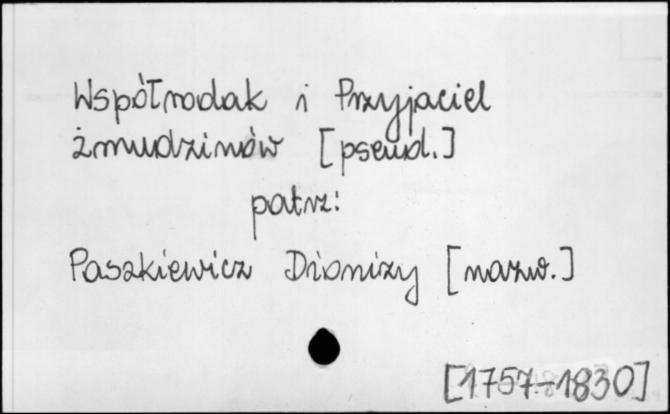 Współrodak i Przyjaciel
żmudzinów [pseud.]
patrz:
Paszkiewicz Dionizy [nazw.]
[1757-1830]